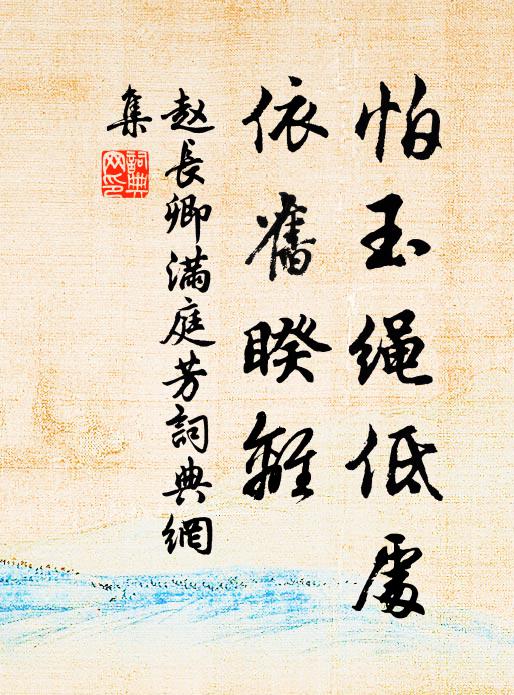 怕玉绳低處
依舊睽離
赵長卿满庭芳詞典網
集
詞典網印